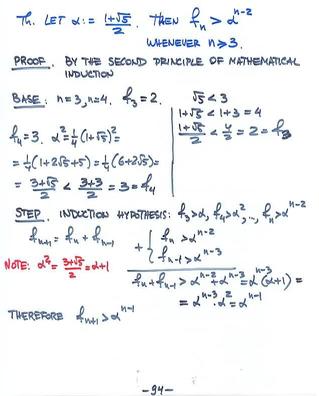 Th. LET α := (1+√5)/2. THEN fₙ > αⁿ⁻²
WHENEVER n ≥ 3.
PROOF. BY THE SECOND PRINCIPLE OF MATHEMATICAL
INDUCTION
BASE: n=3, n=4. f₃ = 2.
√5 < 3
1+√5 < 1+3 = 4
(1+√5)/2 < 4/2 = 2 = f₃
f₄ = 3. α² = ¼(1+√5)² =
= ¼(1+2√5+5) = ¼(6+2√5) =
= (3+√5)/2 < (3+3)/2 = 3 = f₄
STEP. INDUCTION HYPOTHESIS: f₃ > α, f₄ > α², .., fₙ > αⁿ⁻²
fₙ₊₁ = fₙ + fₙ₋₁
+ { fₙ > αⁿ⁻²
fₙ₋₁ > αⁿ⁻³
NOTE: α² = (3+√5)/2 = α+1
fₙ + fₙ₋₁ > αⁿ⁻² + αⁿ⁻³ = αⁿ⁻³(α+1) =
= αⁿ⁻³·α² = αⁿ⁻¹
THEREFORE fₙ₊₁ > αⁿ⁻¹
-94-